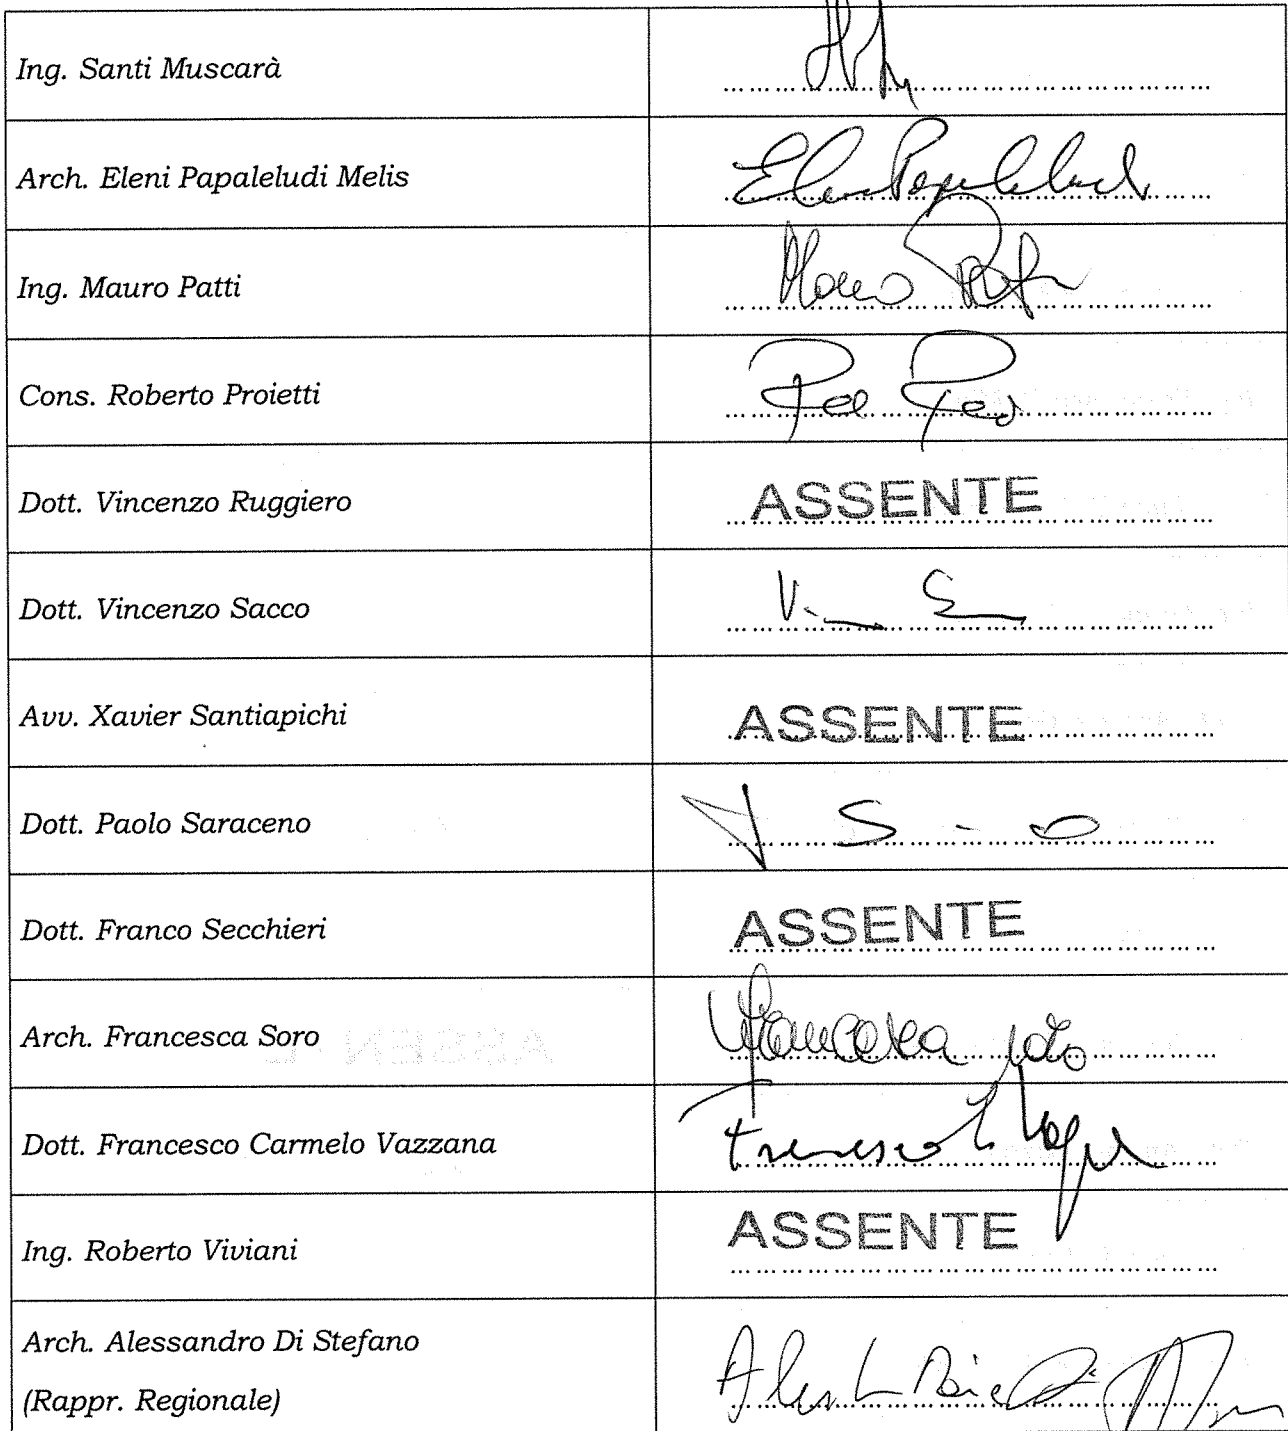 Ing. Santi Muscarà
Arch. Eleni Papaleludi Melis
Ing. Mauro Patti
Cons. Roberto Proietti
Dott. Vincenzo Ruggiero ASSENTE
Dott. Vincenzo Sacco
Avv. Xavier Santiapichi ASSENTE
Dott. Paolo Saraceno
Dott. Franco Secchieri ASSENTE
Arch. Francesca Soro Francesca Soro
Dott. Francesco Carmelo Vazzana
Ing. Roberto Viviani ASSENTE
Arch. Alessandro Di Stefano
(Rappr. Regionale)